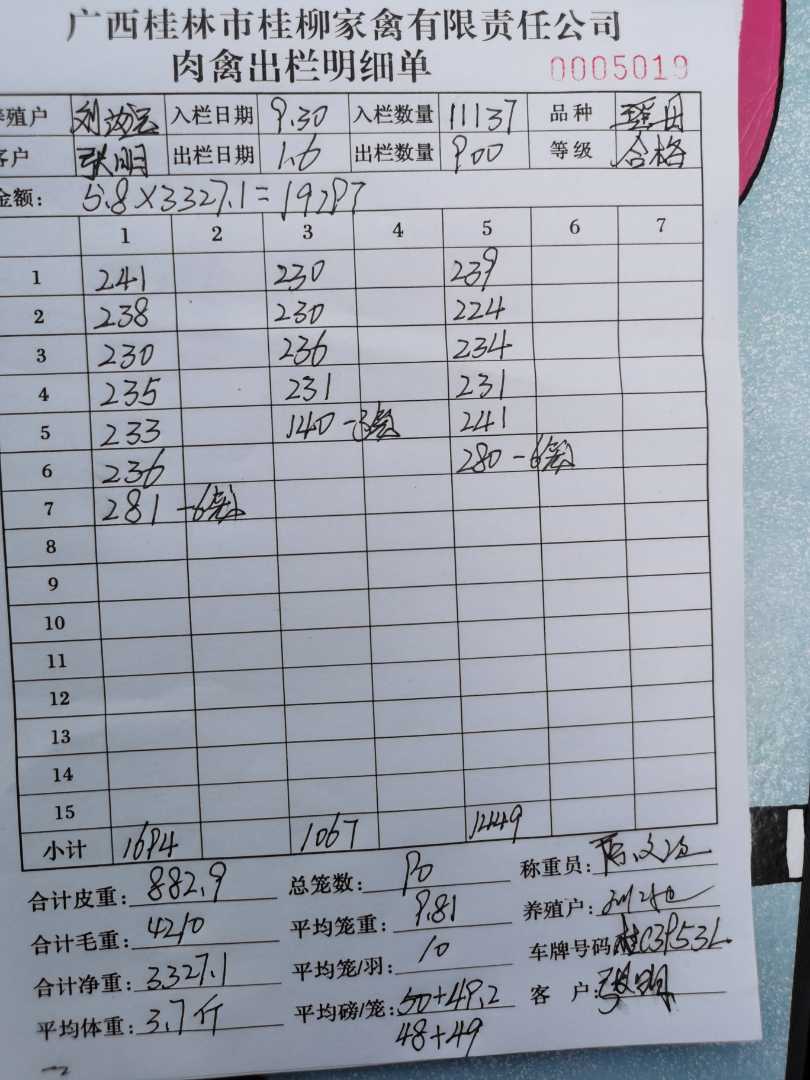 广西桂林市桂柳家禽有限责任公司
肉禽出栏明细单 0005019
养殖户 入栏日期 9.30 入栏数量 11137 品种
客户 张明 出栏日期 1.6 出栏数量 900 等级 合格
金额: 5.8×3327.1=19297
1 2 3 4 5 6 7
1 241 230 239
2 238 230 224
3 230 236 234
4 235 231 231
5 233 140-3笼 241
6 236 280-6笼
7 281-6笼
8
9
10
11
12
13
14
15
小计 1694 1067 1449
合计皮重: 882.9 总笼数: 90 称重员:
合计毛重: 4210 平均笼重: 9.81 养殖户:
合计净重: 3327.1 平均笼/羽: 10 车牌号码: 桂C3P53L
平均体重: 3.7斤 平均磅/笼: 50+49.2 客户: 张明
48+49